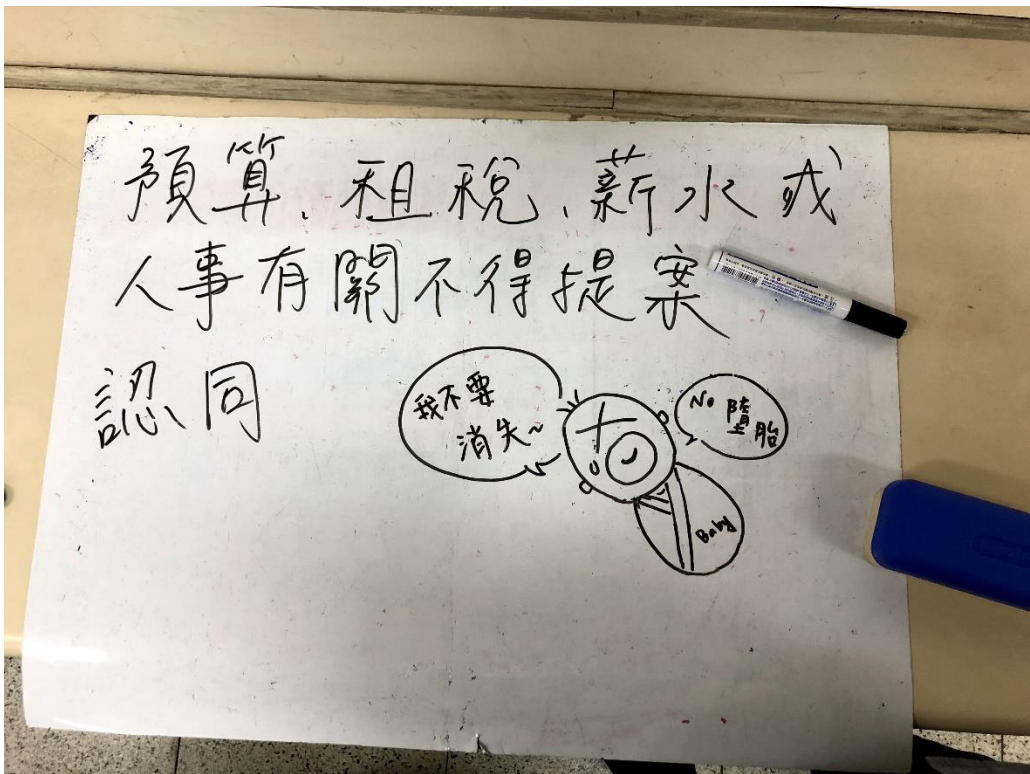 預算、租稅、薪水或
人事有關不得提案
認同
我不要
消失~
No 墮胎
Baby